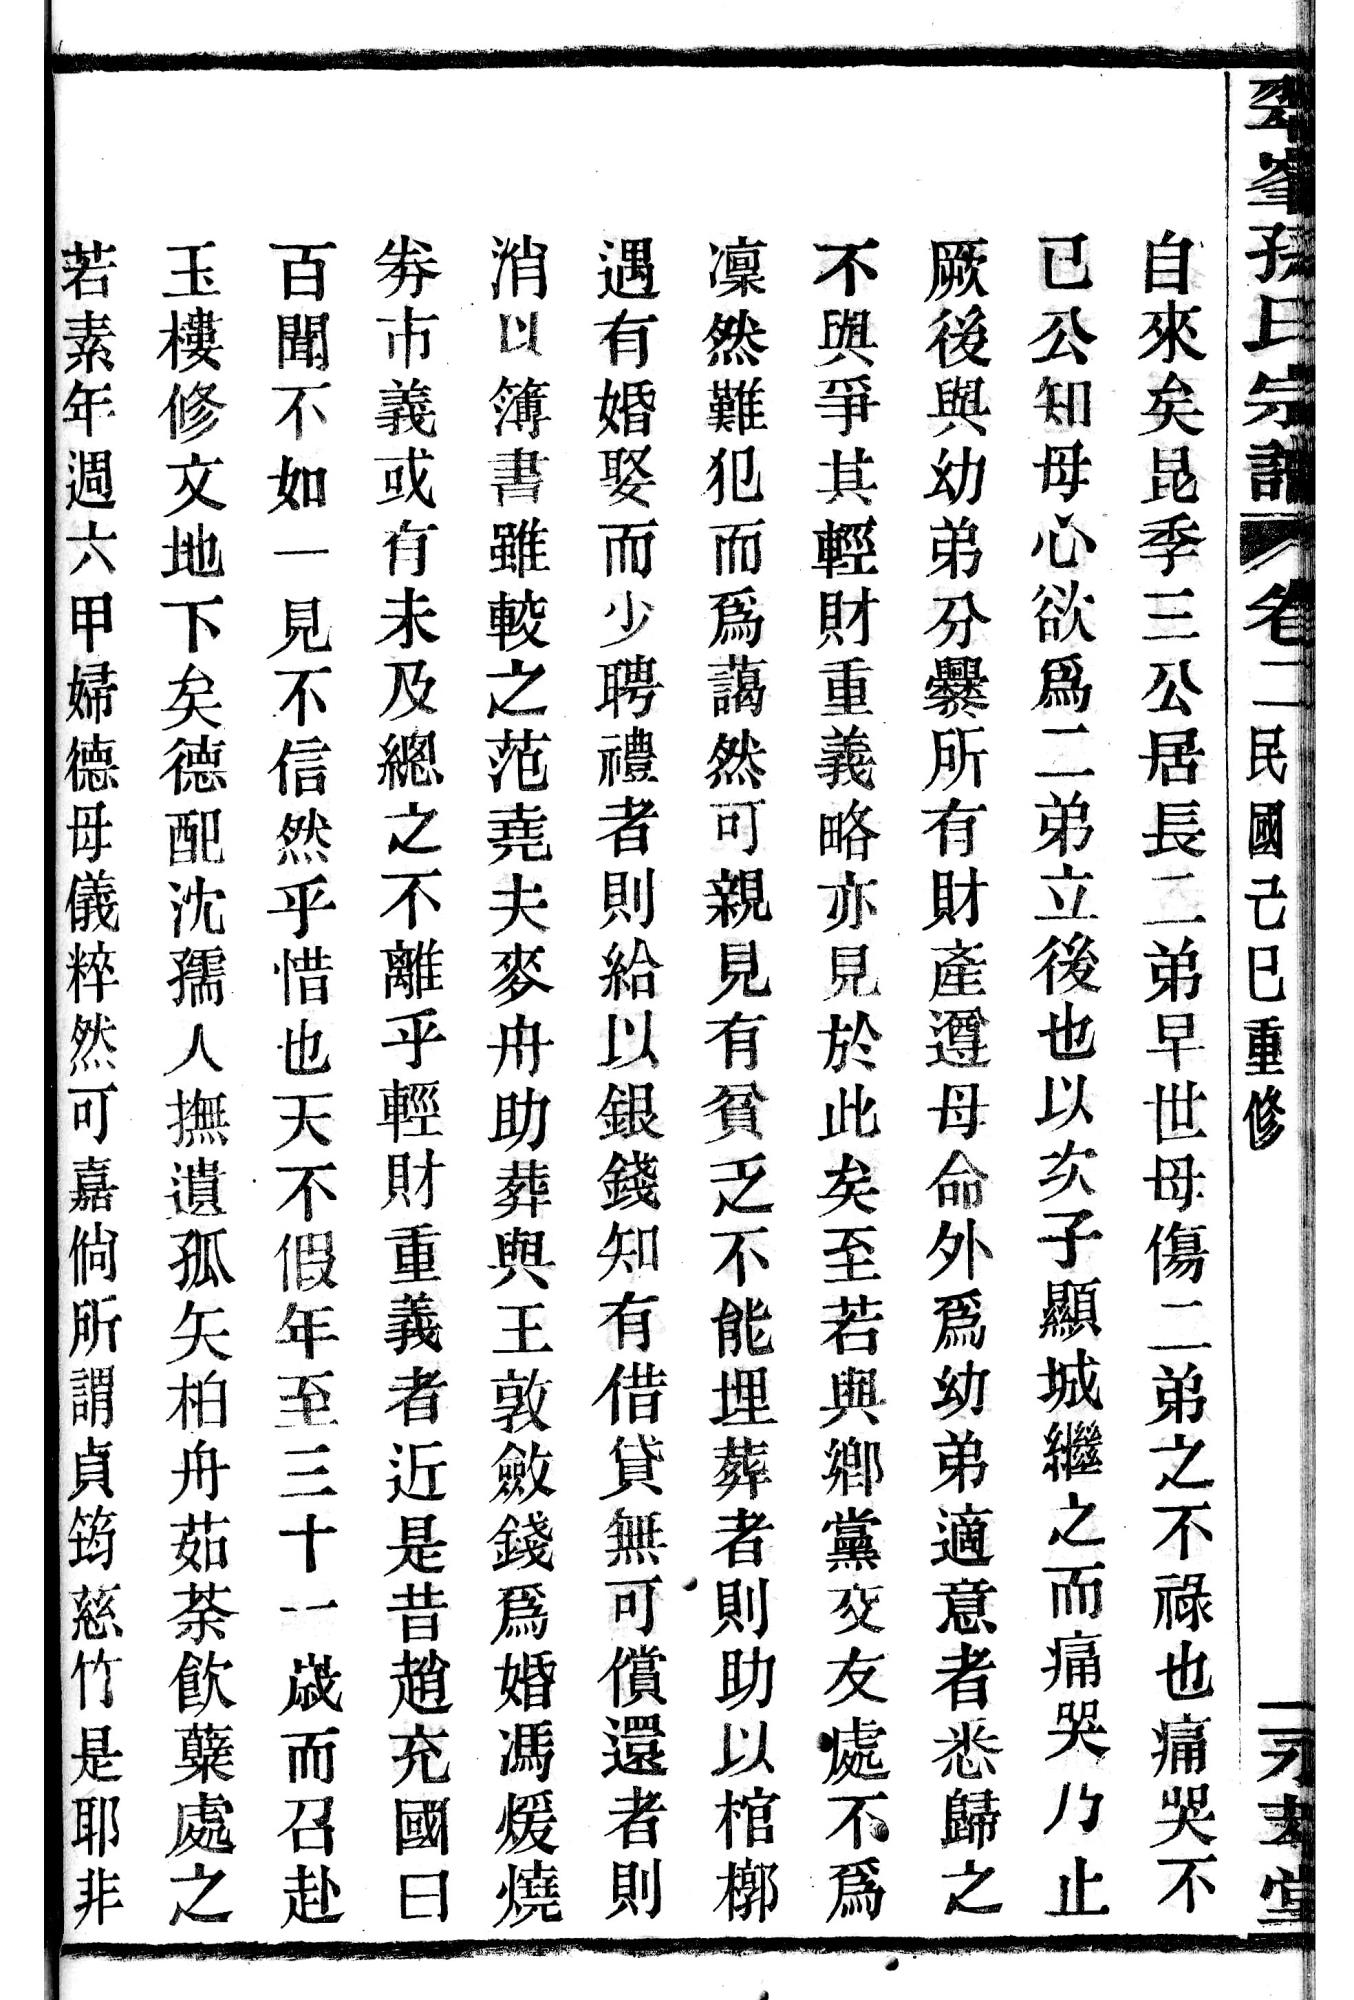 峯孫氏宗譜 卷二 民國己巳重修 堂
自來矣昆季三公居長二弟早世母傷二弟之不祿也痛哭不
已公知母心欲爲二弟立後也以次子顯城繼之而痛哭乃止
厥後與幼弟分爨所有財產遵母命外爲幼弟適意者悉歸之
不與爭其輕財重義略亦見於此矣至若與鄉黨交友處不爲
凜然難犯而爲藹然可親見有貧乏不能埋葬者則助以棺槨
遇有婚娶而少聘禮者則給以銀錢知有借貸無可償還者則
消以簿書雖較之范堯夫麥舟助葬與王敦斂錢爲婚馮煖燒
劵市義或有未及總之不離乎輕財重義者近是昔趙充國曰
百聞不如一見不信然乎惜也天不假年至三十一歲而召赴
玉樓修文地下矣德配沈孺人撫遺孤矢柏舟茹荼飲蘗處之
若素年週六甲婦德母儀粹然可嘉倘所謂貞筠慈竹是耶非